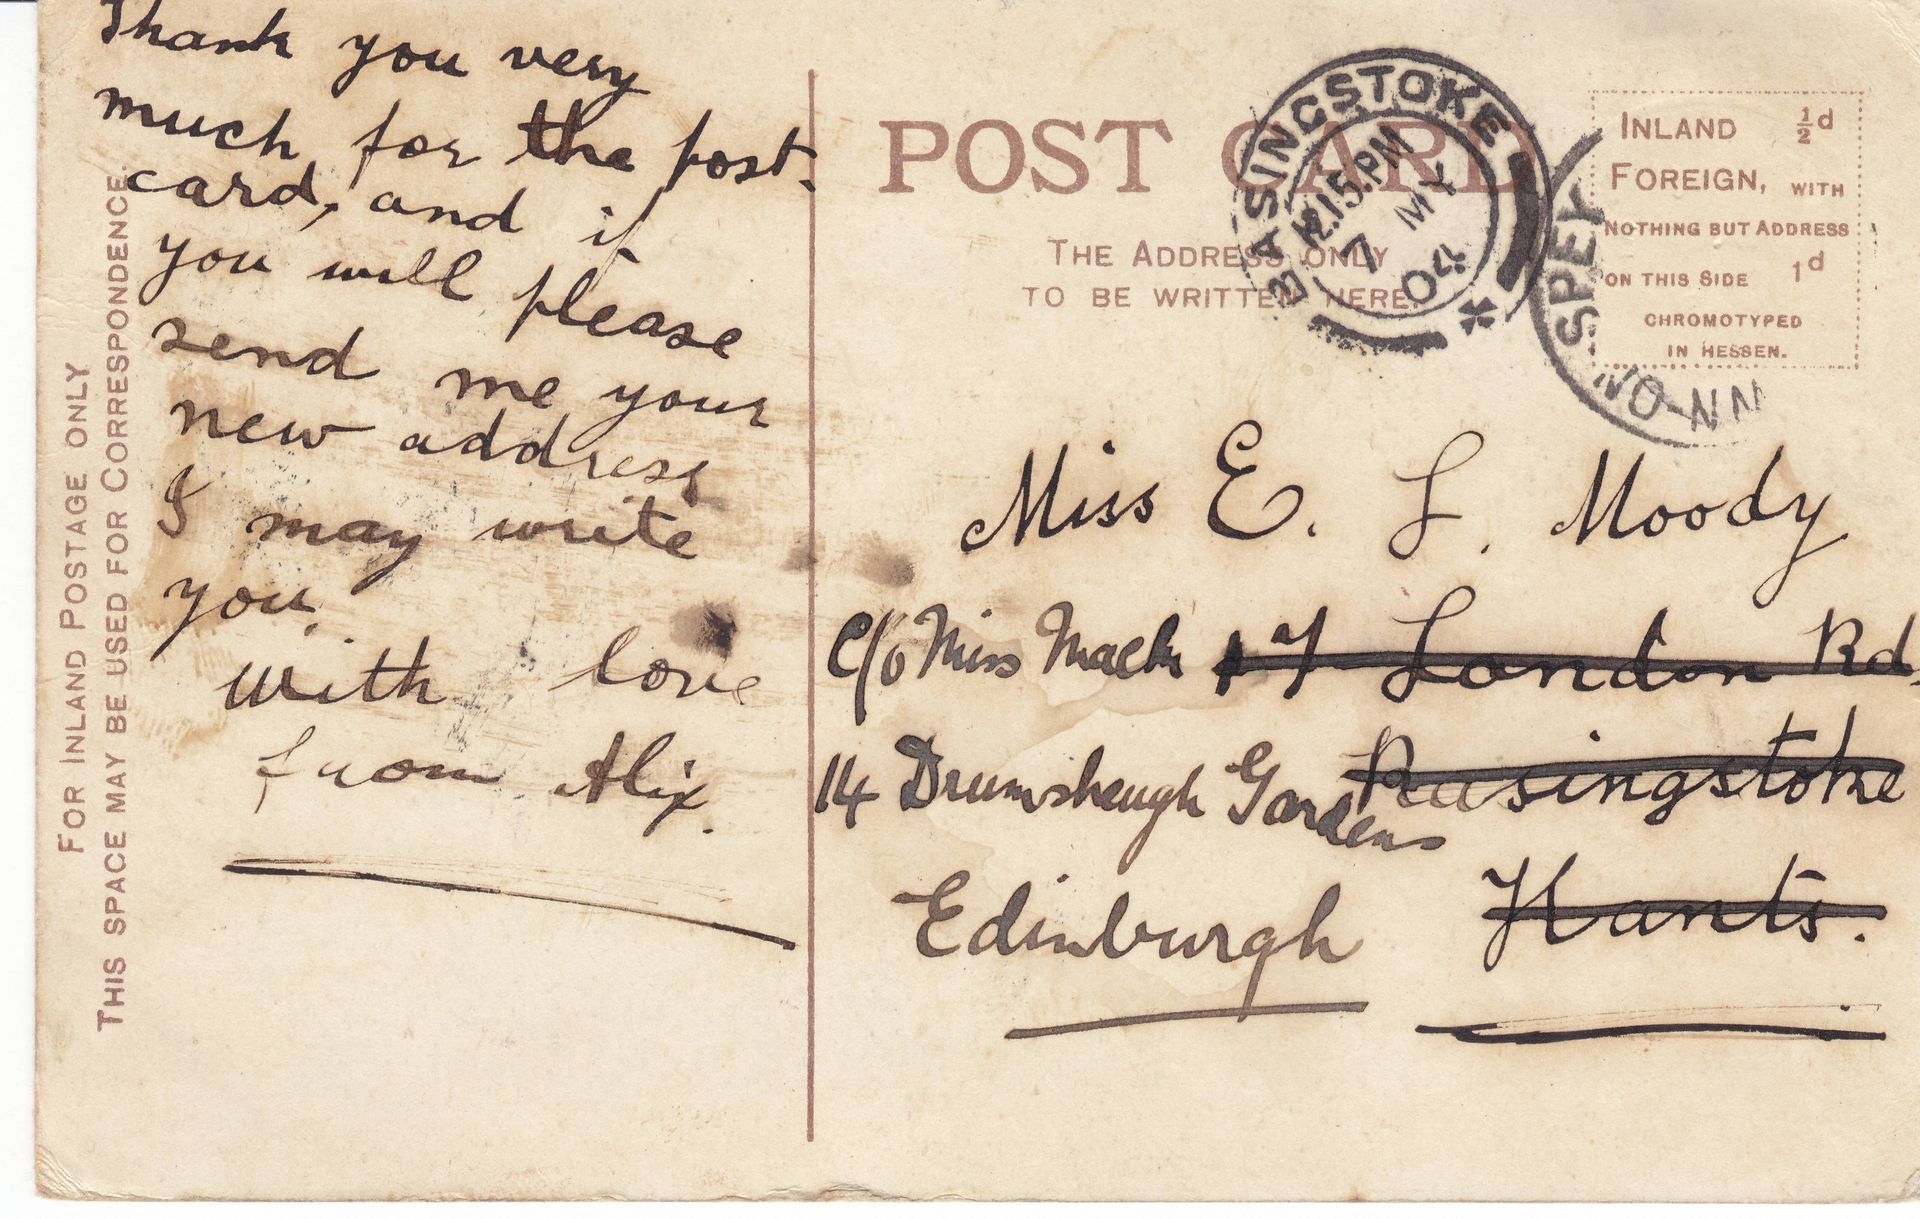 Thank you very
much for the post-
card, and if
you will please
send me your
new address
I may write
you.
With love
from Alix.
FOR INLAND POSTAGE ONLY
THIS SPACE MAY BE USED FOR CORRESPONDENCE.
POST CARD
THE ADDRESS ONLY
TO BE WRITTEN HERE.
BASINGSTOKE
12.15.PM
7 MY
04
SPEY
INLAND ½d
FOREIGN, WITH
NOTHING BUT ADDRESS
ON THIS SIDE 1d
CHROMOTYPED
IN HESSEN.
Miss E. L. Moody
c/o Miss 17 London Rd.
14 Drumsheugh Gardens Basingstoke
Edinburgh Hants.